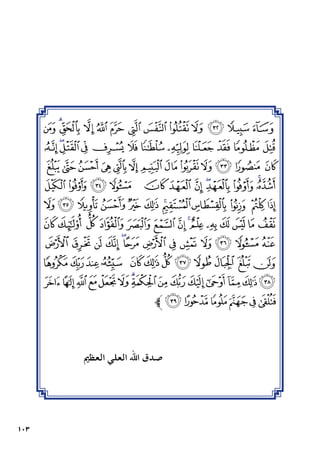 وَسَآءَ سَبِيلًا ﴿٣٢﴾ وَلَا تَقْتُلُوا۟ ٱلنَّفْسَ ٱلَّتِى حَرَّمَ ٱللَّهُ إِلَّا بِٱلْحَقِّ ۗ وَمَن
قُتِلَ مَظْلُومًا فَقَدْ جَعَلْنَا لِوَلِيِّهِۦ سُلْطَٰنًا فَلَا يُسْرِف فِّى ٱلْقَتْلِ ۖ إِنَّهُۥ
كَانَ مَنصُورًا ﴿٣٣﴾ وَلَا تَقْرَبُوا۟ مَالَ ٱلْيَتِيمِ إِلَّا بِٱلَّتِى هِىَ أَحْسَنُ حَتَّىٰ يَبْلُغَ
أَشُدَّهُۥ ۚ وَأَوْفُوا۟ بِٱلْعَهْدِ ۖ إِنَّ ٱلْعَهْدَ كَانَ مَسْـُٔولًا ﴿٣٤﴾ وَأَوْفُوا۟ ٱلْكَيْلَ
إِذَا كِلْتُمْ وَزِنُوا۟ بِٱلْقِسْطَاسِ ٱلْمُسْتَقِيمِ ۚ ذَٰلِكَ خَيْرٌ وَأَحْسَنُ تَأْوِيلًا ﴿٣٥﴾ وَلَا
تَقْفُ مَا لَيْسَ لَكَ بِهِۦ عِلْمٌ ۚ إِنَّ ٱلسَّمْعَ وَٱلْبَصَرَ وَٱلْفُؤَادَ كُلُّ أُو۟لَٰٓئِكَ كَانَ
عَنْهُ مَسْـُٔولًا ﴿٣٦﴾ وَلَا تَمْشِ فِى ٱلْأَرْضِ مَرَحًا ۖ إِنَّكَ لَن تَخْرِقَ ٱلْأَرْضَ
وَلَن تَبْلُغَ ٱلْجِبَالَ طُولًا ﴿٣٧﴾ كُلُّ ذَٰلِكَ كَانَ سَيِّئُهُۥ عِندَ رَبِّكَ مَكْرُوهًا
﴿٣٨﴾ ذَٰلِكَ مِمَّآ أَوْحَىٰٓ إِلَيْكَ رَبُّكَ مِنَ ٱلْحِكْمَةِ ۗ وَلَا تَجْعَلْ مَعَ ٱللَّهِ إِلَٰهًا ءَاخَرَ
فَتُلْقَىٰ فِى جَهَنَّمَ مَلُومًا مَّدْحُورًا ﴿٣٩﴾ ﴾
صدق الله العلي العظيم
١٠٣